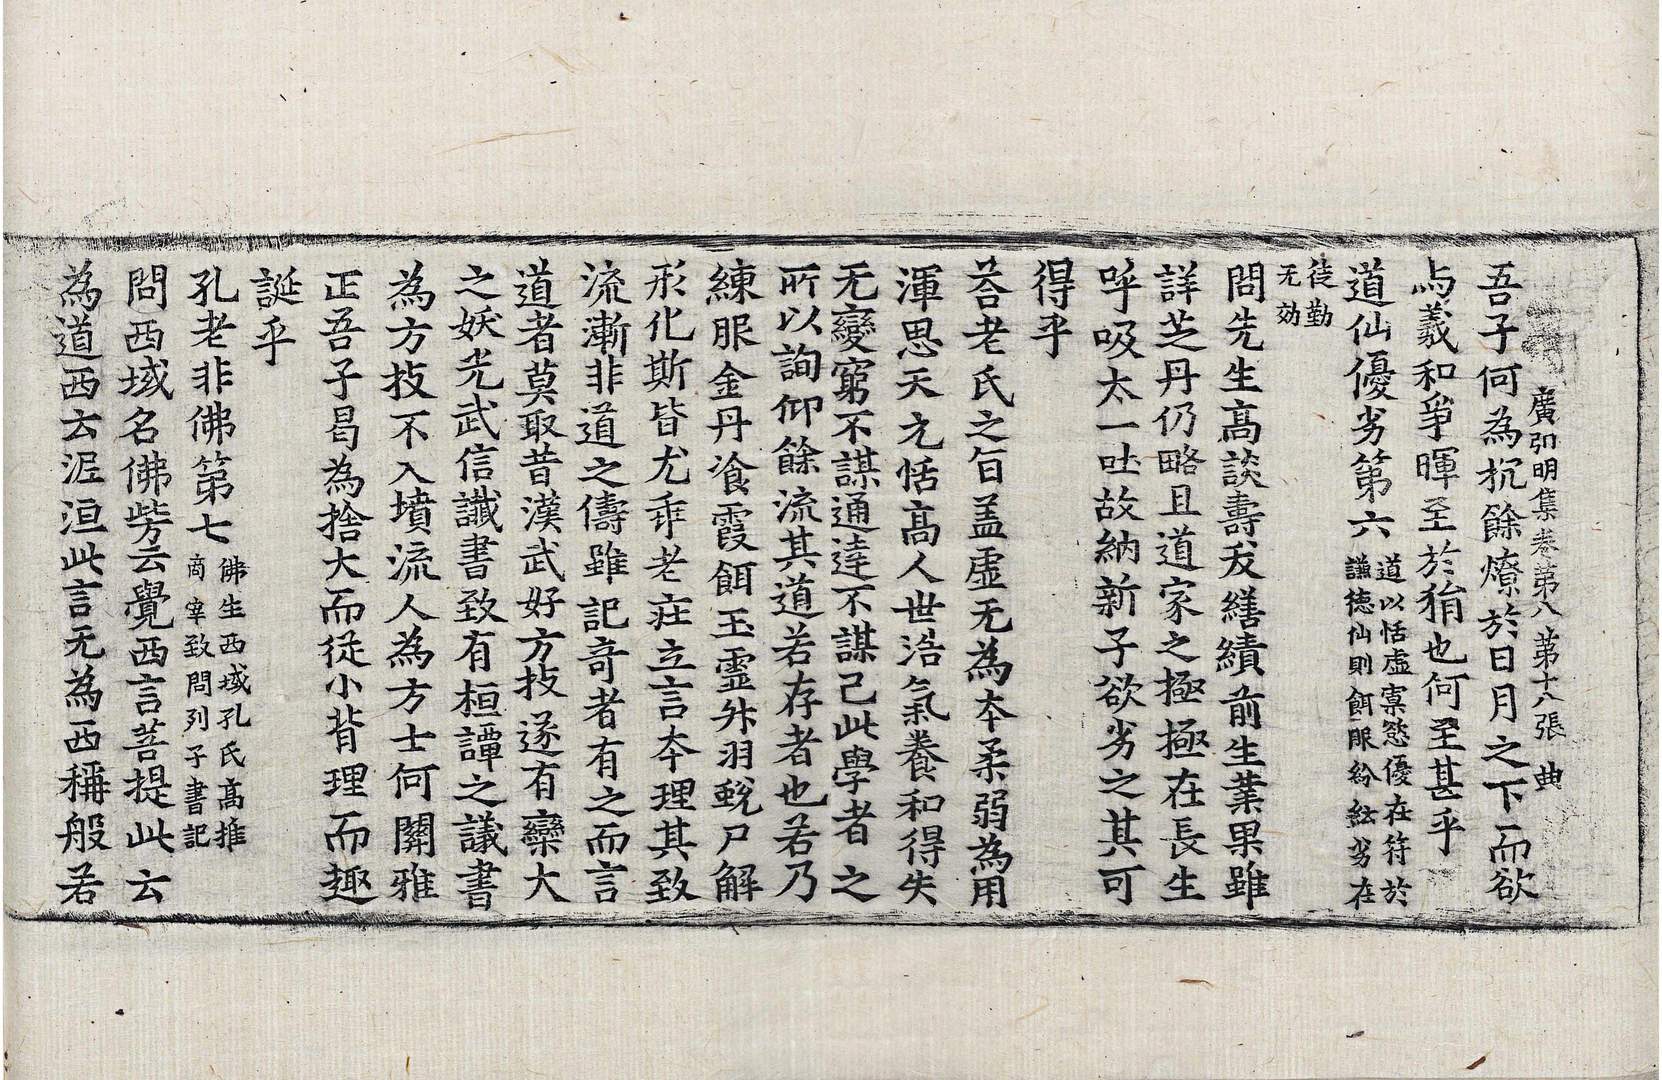 廣弘明集卷第八 第十八張 典
吾子何為抗餘燎於日月之下而欲
与羲和爭暉至於𤞑也何至甚乎
道仙優劣第六 道以恬虛寡慾優在符於
謙德仙則餌服紛紜劣在
徒勤
无効
問先生高談壽夭繕績前生業果雖
詳芝丹仍略且道家之極極在長生
呼吸太一吐故納新子欲劣之其可
得乎
荅老氏之旨盖虛无為夲柔弱為用
渾思天元恬高人世浩氣養和得失
无變窮不謀通達不謀己此學者之
所以詢仰餘流其道若存者也若乃
練服金丹飡霞餌玉霊升羽蛻尸解
形化斯皆尤乖老莊立言夲理其致
流漸非道之儔雖記奇者有之而言
道者莫取昔漢武好方技遂有欒大
之妖光武信讖書致有桓譚之議書
為方技不入墳流人為方士何關雅
正吾子曷為捨大而從小背理而趣
誕乎
孔老非佛第七 佛生西域孔氏髙推
商宰致問列子書記
問西域名佛此云覺西言菩提此云
為道西云泥洹此言无為西稱般若